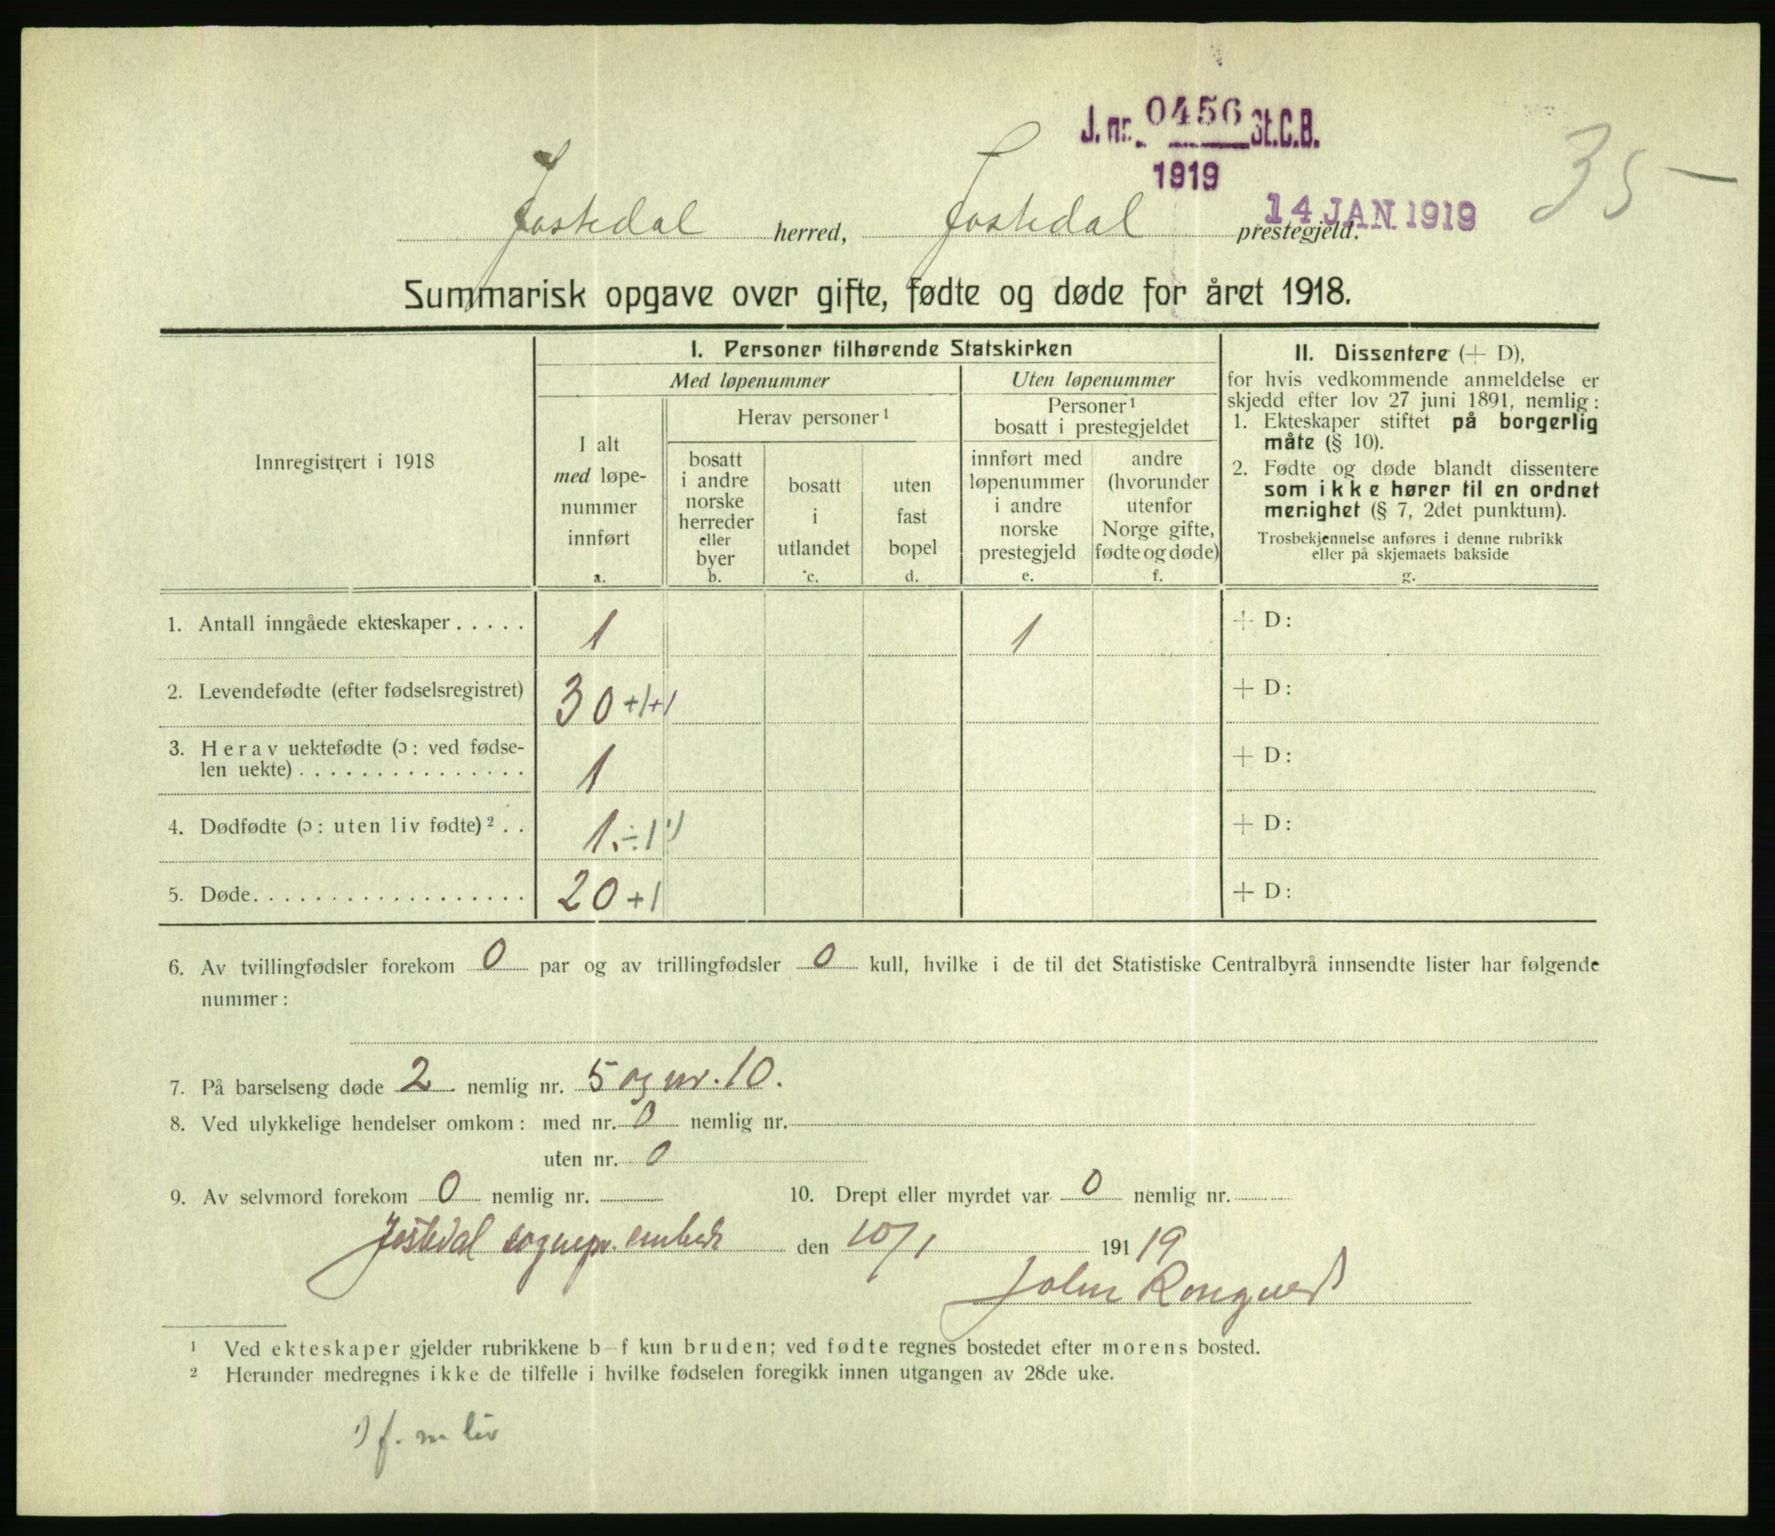 J. nr. 0456 St.C.B.
1919
14 JAN 1919
35 –
Jostedal herred, Jostedal prestegjeld.
Summarisk opgave over gifte, fødte og døde for året 1918.
Innregistrert i 1918
I. Personer tilhørende Statskirken
Med løpenummer
Uten løpenummer
I alt
med løpe-
nummer
innført
a.
Herav personer ¹
bosatt
i andre
norske
herreder
eller
byer
b.
bosatt
i
utlandet
c.
uten
fast
bopel
d.
Personer ¹
bosatt i prestegjeldet
innført med
løpenummer
i andre
norske
prestegjeld
e.
andre
(hvorunder
utenfor
Norge gifte,
fødte og døde)
f.
II. Dissentere (+ D),
for hvis vedkommende anmeldelse er
skjedd efter lov 27 juni 1891, nemlig:
1. Ekteskaper stiftet på borgerlig
måte (§ 10).
2. Fødte og døde blandt dissentere
som ikke hører til en ordnet
menighet (§ 7, 2det punktum).
Trosbekjennelse anføres i denne rubrikk
eller på skjemaets bakside
g.
1. Antall inngåede ekteskaper . . . . . 1 1 + D:
2. Levendefødte (efter fødselsregistret) 30 +1+1 + D:
3. Herav uektefødte (ɔ: ved fødse-
len uekte) . . . . . . . . . . . . . . . 1 + D:
4. Dødfødte (ɔ: uten liv fødte) ² . . 1. ÷1 ¹) + D:
5. Døde. . . . . . . . . . . . . . . . . . 20 +1 + D:
6. Av tvillingfødsler forekom 0 par og av trillingfødsler 0 kull, hvilke i de til det Statistiske Centralbyrå innsendte lister har følgende
nummer:
7. På barselseng døde 2 nemlig nr. 5 og nr. 10.
8. Ved ulykkelige hendelser omkom: med nr. 0 nemlig nr.
uten nr. 0
9. Av selvmord forekom 0 nemlig nr. 10. Drept eller myrdet var 0 nemlig nr.
Jostedal sognepr. embede den 10/1 1919
John
¹ Ved ekteskaper gjelder rubrikkene b–f kun bruden; ved fødte regnes bostedet efter morens bosted.
² Herunder medregnes ikke de tilfelle i hvilke fødselen foregikk innen utgangen av 28de uke.
¹) f. m liv